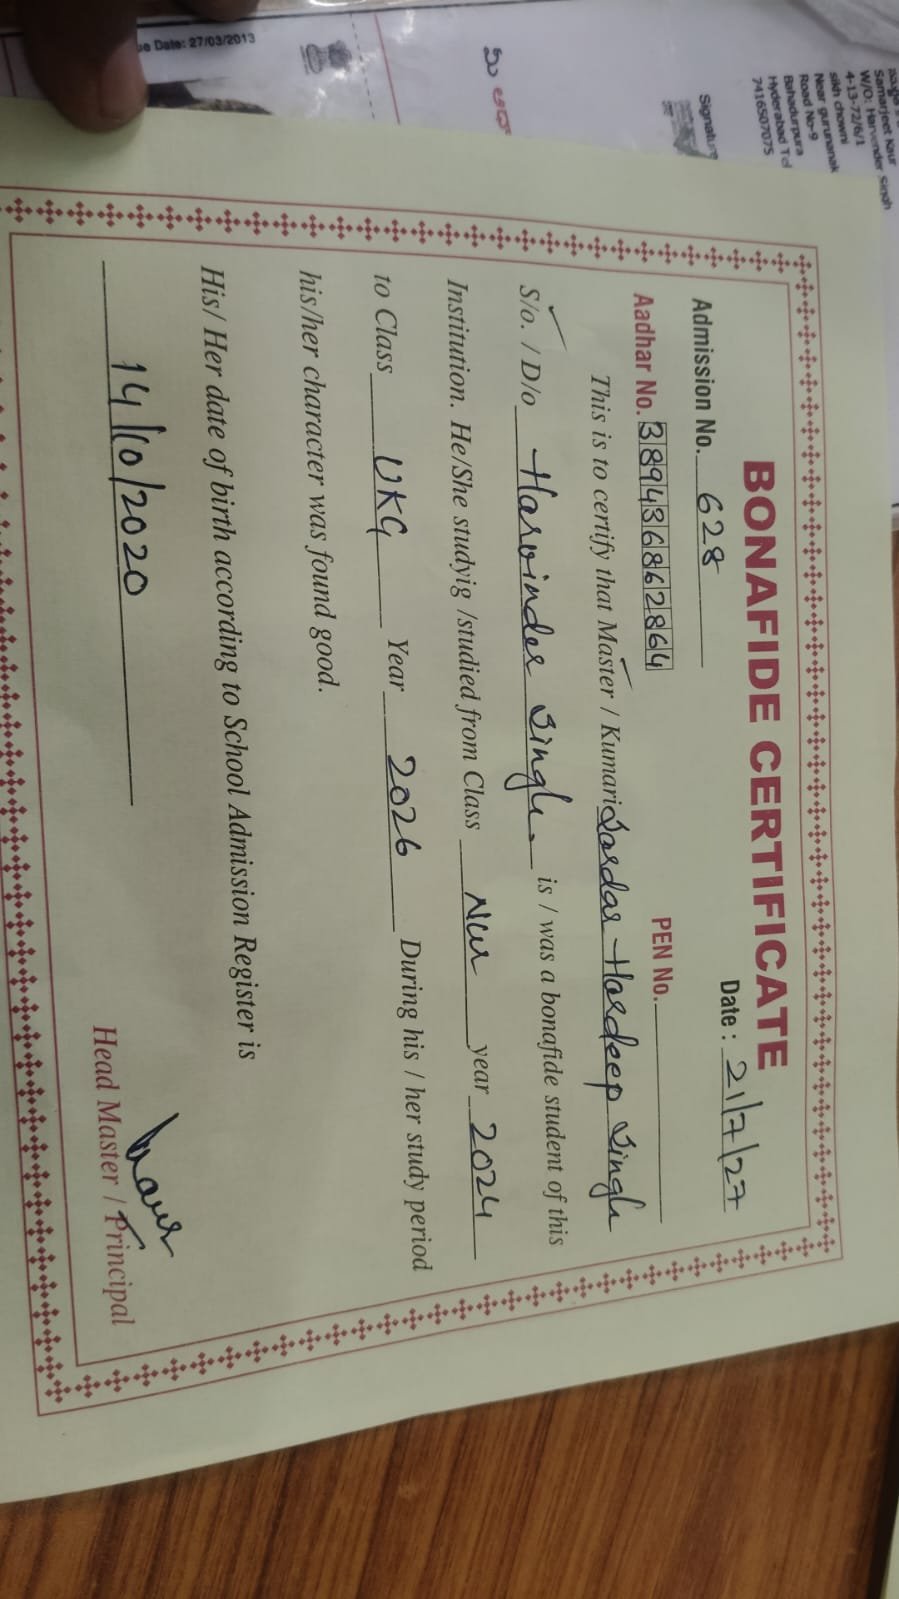 ue Date: 27/03/2013
Signature
Samarjeet Kaur
W/O: Harvender Singh
4-13-72/6/1
sikh chowni
Near gurunanak
Road No-9
Bahadurpura
Hyderabad Tel
7416507075
BONAFIDE CERTIFICATE
Admission No. 628 Date : 21/7/27
Aadhar No. 389436862864 PEN No.
This is to certify that Master / Kumari Sardar Hardeep Singh
S/o. / D/o Harvinder Singh. is / was a bonafide student of this
Institution. He/She studyig /studied from Class Nur year 2024
to Class UKG Year 2026 During his / her study period
his/her character was found good.
His/ Her date of birth according to School Admission Register is
14/10/2020
Head Master / Principal